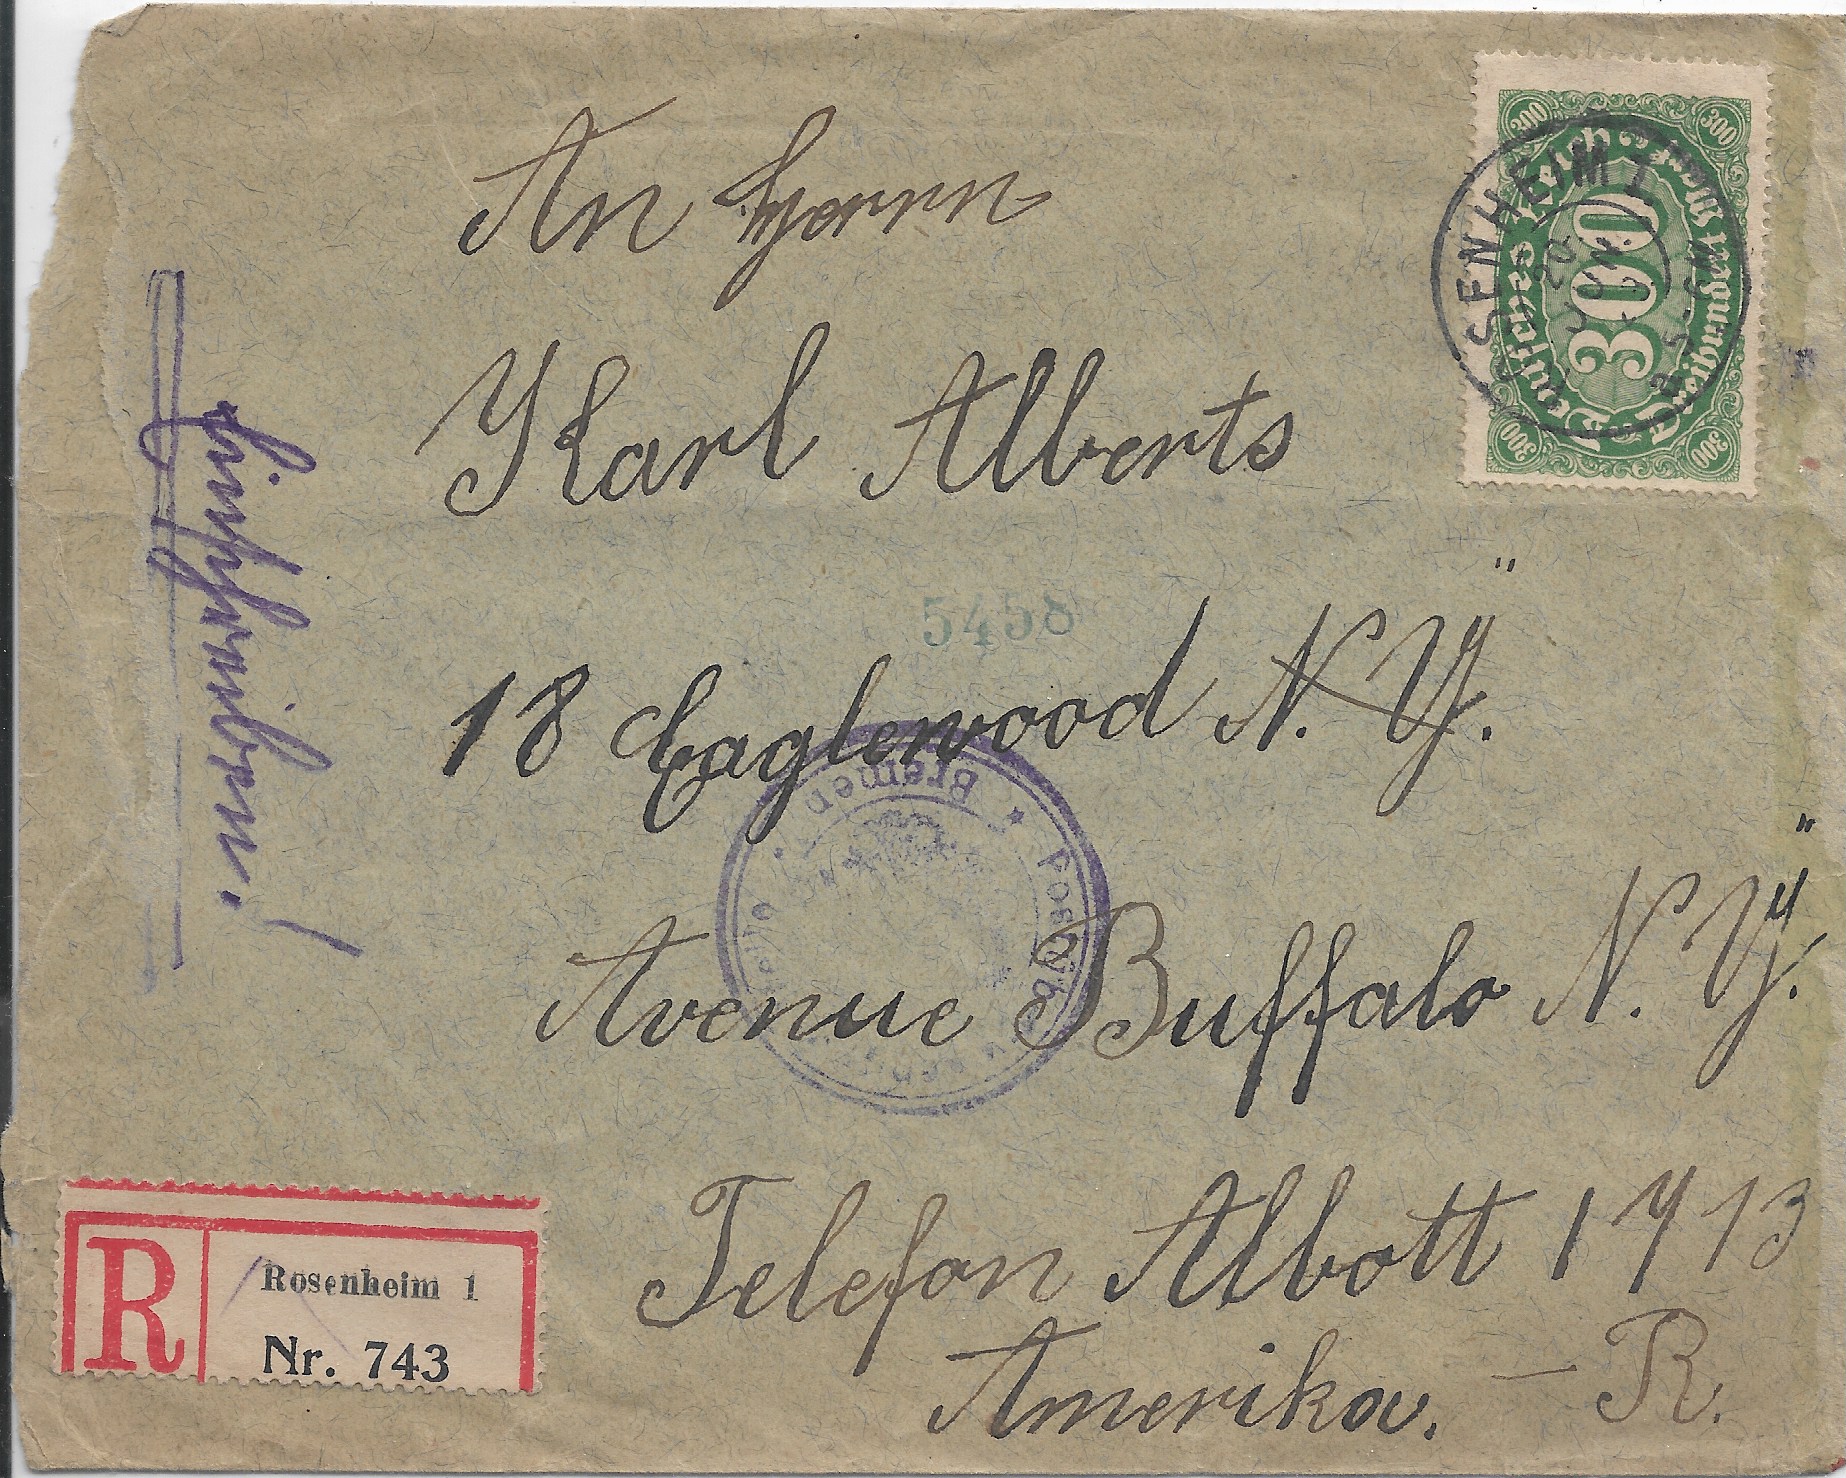 An Herrn
Karl Alberts
18 Eaglewood N. Y.
"
Avenue Buffalo N. Y.
"
Telefon Abbott 1713
Amerika. – R.
Einschreiben!
5458
Deutsches Reich
300
300
300
300
300
ROSENHEIM 1
20 JUN
N. 5-6
Bremen
R
Rosenheim 1
Nr. 743